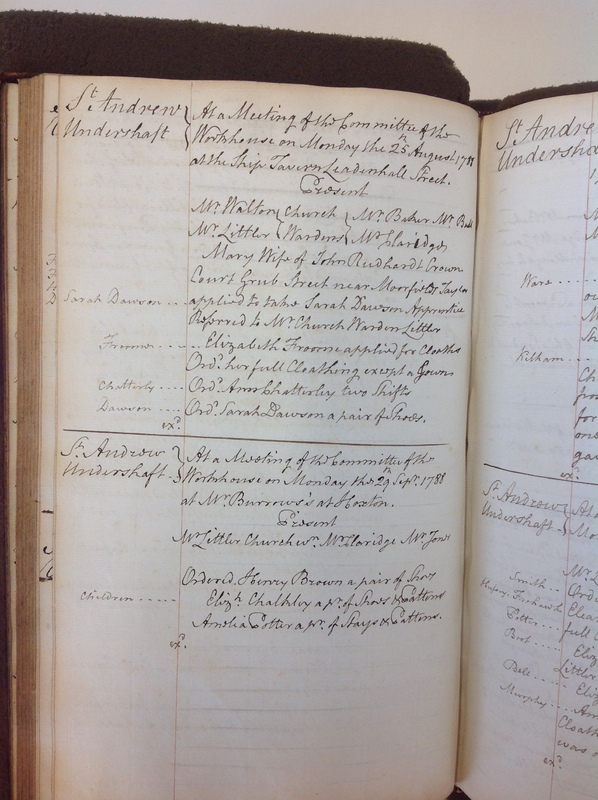 St. Andrew
Undershaft
At a Meeting of the Committee of the
Workhouse on Monday the 25th August 1788
at the Ship Tavern Leadenhall Street.
Present
Mr. Walton Church Mr. Baker Mr. Ball
Mr. Littler Wardens Mr. Claridge
Mary Wife of John Rudhardt Crown
Court Grub Street near Moorfields Taylor
Sarah Dawson .... applied to take Sarah Dawson Apprentice
Referred to Mr. Church Warden Littler
Froome ..... Elizabeth Froome applied for Cloaths
Ord. her full Cloathing except a Gown
Chatterley .... Ord. Ann Chatterley two Shifts
Dawson .... Ord. Sarah Dawson a pair of Shoes.
exd.
St. Andrew
Undershaft
At a Meeting of the Committee of the
Workhouse on Monday the 29th Sept. 1788
at Mr. Burrows's at Hoxton.
Present
Mr. Littler Churchwn. Mr. Claridge Mr. Jones
Ordered. Henry Brown a pair of Shoes
Children ..... Elizh. Chalkley a pr. of Shoes & Pattens
Amelia Potter a pr. of Stays & Pattens.
exd.
St. Andre
Undersha
Ware ....
Kilham ....
Ch
for
one
gav
exd.
St. Andrew
Undershaft
At a
Mo
Mr. L
Smith .. Orde
Elea
Potter ... full
Brot .... Eliz
Littler
Dale .... Eliz
Murphy .... Am
Cloath
was
exd.